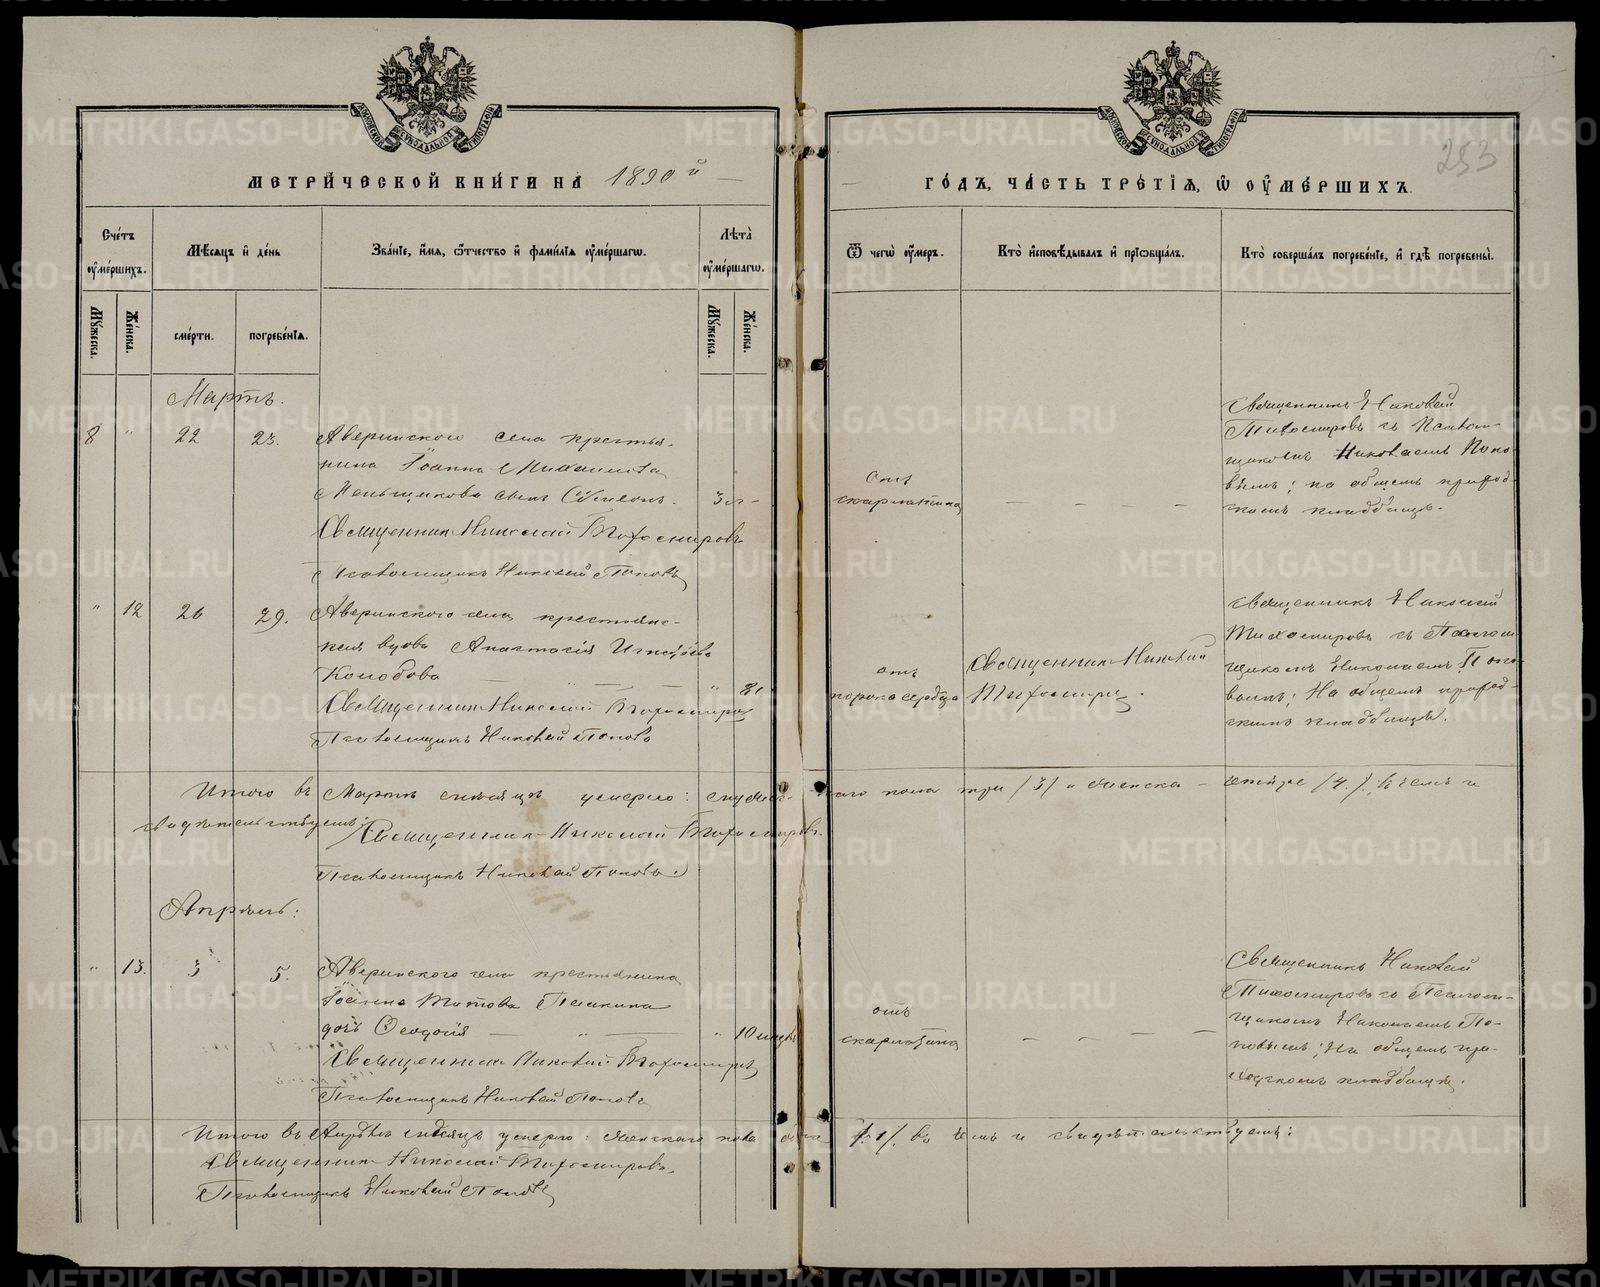 МЕТРИ́ЧЕСКОЙ КНИ́ГИ НА 1890й
ГО́ДЪ, ЧА́СТЬ ТРЕ́ТІЯ, Ѿ ОУ҆МЕ́РШИХЪ
253
Сче́тъ оу҆ме́ршихъ.
Мꙋ́жеска.
Же́нска.
Мѣ́сяцъ и҆ де́нь
сме́рти.
погребе́нїѧ.
Зва́нїе, и҆́мѧ, ѻ҆́тчество и҆ фами́лїѧ оу҆ме́ршагѡ.
Лѣ́та оу҆ме́ршагѡ.
Мꙋ́жеска.
Же́нска.
Ѿ чегѡ̀ оу҆́меръ.
Кто̀ и҆сповѣ́дывалъ и҆ прїѡбща́лъ.
Кто̀ соверша́лъ погребе́нїе, и҆ гдѣ̀ погребены̀.
Мартъ.
8 " 22 23.
Аверинскаго села крестья-
нина Іоанна Михаилова
Меньщикова сынъ Симеонъ. 3 г.
Священникъ Николай Тихомировъ
Псаломщикъ Николай Поповъ
отъ
скарлатины
Священникъ Николай
Тихомировъ съ Псалом-
щикомъ Николаемъ Попо-
вымъ; на общемъ приход-
скомъ кладбищѣ.
" 12 26 29.
Аверинскаго села крестьянс-
кая вдова Анастасія
Колобова " 81
Священникъ Николай Тихомировъ
Псаломщикъ Николай Поповъ
отъ
порока сердца
Священникъ Николай
Тихомировъ.
Священникъ Николай
Тихомировъ съ Псалом-
щикомъ Николаемъ Попо-
вымъ; На общемъ приход-
скомъ кладбищѣ.
Итого въ Мартѣ мѣсяцѣ умерло: мужес-
каго пола три /3/ и женска- четыре /4/. Въ чемъ и
свидѣтельствуемъ:
Священникъ Николай Тихомировъ.
Псаломщикъ Николай Поповъ.
Апрѣль:
" 13. 3 5.
Аверинскаго села крестьянина
Іоанна Титова Пашкина
дочь Ѳеодосія " 10 мѣсяц
Священникъ Николай Тихомировъ
Псаломщикъ Николай Поповъ
отъ
скарлатины
Священникъ Николай
Тихомировъ съ Псалом-
щикомъ Николаемъ По-
повымъ; На общемъ при-
ходскомъ кладбищѣ.
Итого въ Апрѣлѣ мѣсяцѣ умерло: женскаго пола одна /1/. въ чемъ и свидѣтельствуемъ:
Священникъ Николай Тихомировъ.
Псаломщикъ Николай Поповъ
METRIKI.GASO-URAL.RU